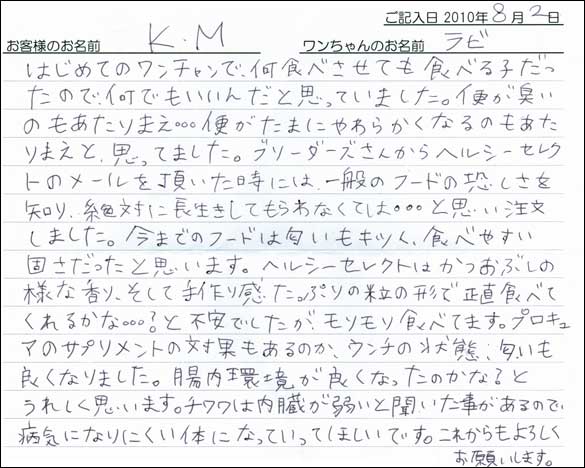 ご記入日 2010年8月2日
お客様のお名前 K.M ワンちゃんのお名前 ラビ
はじめてのワンチャンで、何食べさせても食べる子だっ
たので、何でもいいんだと思っていました。便が臭い
のもあたりまえ…便がたまにやわらかくなるのもあた
りまえと、思ってました。ブリーダーズさんからヘルシーセレク
トのメールを頂いた時には、一般のフードの恐しさを
知り、絶対に長生きしてもらわなくては…と思い注文
しました。今までのフードは匂いもキツく、食べやすい
固さだったと思います。ヘルシーセレクトはかつおぶしの
様な香り、そして手作り感たっぷりの粒の形で正直食べて
くれるかな…?と不安でしたが、モリモリ食べてます。プロキュ
アのサプリメントの効果もあるのか、ウンチの状態、匂いも
良くなりました。腸内環境が良くなったのかな?と
うれしく思います。チワワは内臓が弱いと聞いた事があるので
病気になりにくい体になっていってほしいです。これからもよろしく
お願いします。